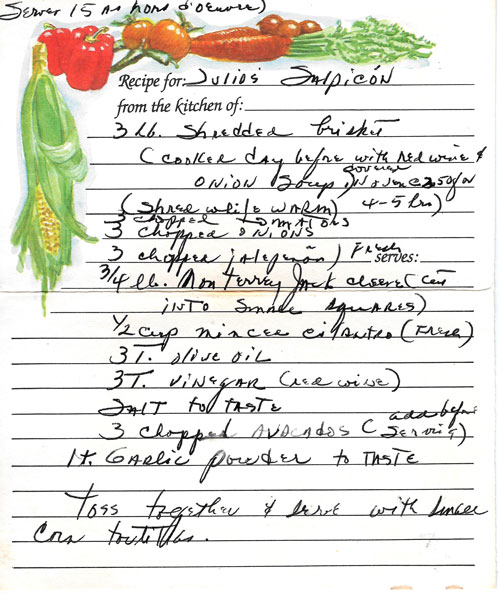 Serves 15 as hors d'oeuvre)
Recipe for: Julio's Salpicón
from the kitchen of:
3 lb. Shredded brisket
(cooked day before with red wine &
onion soup, covered in oven @ 250 for
(Shred while warm) 4-5 hrs)
3 chopped tomatoes
3 chopped onions
3 chopped jalepeños) Fresh
serves:
3/4 lb. Monterrey Jack cheese (cut
into small squares)
1/2 cup minced cilantro (Fresh)
3 T. olive oil
3 T. vinegar (red wine)
Salt to taste
3 chopped avocados (add before serving)
1 t. Garlic powder to taste
Toss together & serve with
corn tortillas.